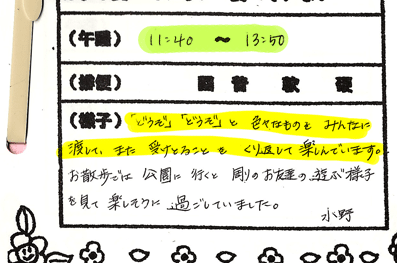 (午睡) 11:40 〜 13:50
(排便) 固 普 軟 硬
(様子) 「どうぞ」「どうぞ」と 色々なものを みんなに
渡して、また 受けとることを くり返して楽しんでいます。
お散歩では 公園に 行くと 周りのお友達の 遊ぶ様子
を見て 楽しそうに 過ごしていました。
水野